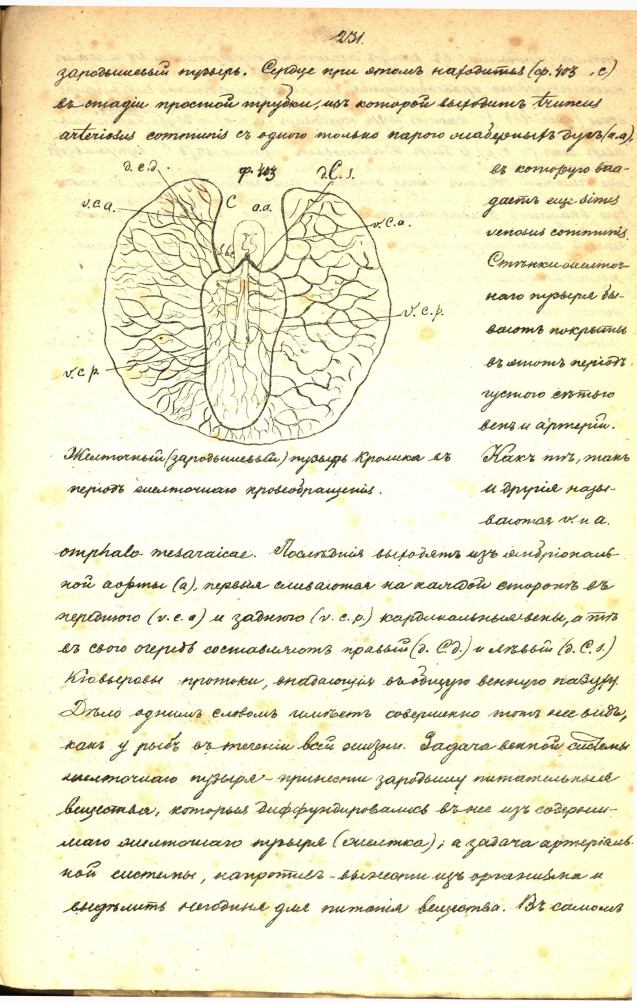 231.
зародышевый пузырь. Сердце при этомъ находится (ф. 403, с)
въ стадіи простой трубки, изъ которой выходитъ truncus
arteriosus communis съ одного только парою жаберныхъ дугъ (a.a),
d. c. d.
ф. 403
d. C. s.
v. c. a.
C
a.a.
v. c. a.
v. c. p.
v. c. p.
въ которую впа-
даетъ еще sinus
venosus communis.
Стѣнки желточ-
наго пузыря бы-
ваютъ покрыты
въ этотъ періодъ
густою сѣтью
венъ и артерій.
Какъ тѣ, такъ
и другія назы-
ваются v. и a.
Желточный (зародышевый) пузырь Кролика въ
періодъ желточнаго кровеобращенія.
omphalo mesaraicae. Послѣднія выходятъ изъ эмбріональ-
ной аорты (a), первыя сливаются на каждой сторонѣ въ
переднюю (v. c. a) и заднюю (v. c. p.) кардинальныя вены, а тѣ
въ свою очередь составляютъ правый (d. C d.) и лѣвый (d. C. s.)
Кювьеровы протоки, впадающія въ общую венную пазуху.
Дѣло однимъ словомъ имѣетъ совершенно тотъ же видъ,
какъ у рыбъ въ теченіи всей жизни. Задача венной системы
желточнаго пузыря - принести зародышу питательныя
вещества, которыя диффундировались въ нее изъ содержи-
маго желточнаго пузыря (желтка); а задача артеріаль-
ной системы, напротивъ - вынести изъ организма и
выдѣлить негодныя для питанія вещества. Въ самомъ